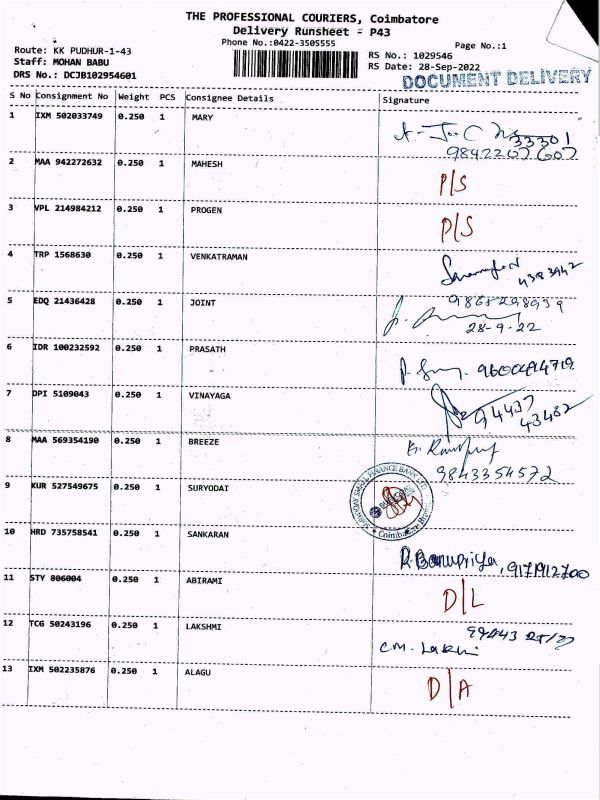 THE PROFESSIONAL COURIERS, Coimbatore
Delivery Runsheet - P43
Phone No.:0422-3505555
Page No.:1
Route: KK PUDHUR-1-43
RS No.: 1029546
Staff: MOHAN BABU
RS Date: 28-Sep-2022
DRS No.: DCJB102954601
DOCUMENT DELIVERY
S No Consignment No Weight PCS Consignee Details Signature
1 IXM 502033749 0.250 1 MARY
33301
9842207607
2 MAA 942272632 0.250 1 MAHESH P/S
3 VPL 214984212 0.250 1 PROGEN P/S
4 TRP 1568630 0.250 1 VENKATRAMAN
4383942
5 EDQ 21436428 0.250 1 JOINT
28-9-22
6 IDR 100232592 0.250 1 PRASATH
7 DPI 5109043 0.250 1 VINAYAGA
94437
43482
8 MAA 569354190 0.250 1 BREEZE
9843354572
9 KUR 527549675 0.250 1 SURYODAI
FINANCE BANK LTD
Coimbatore
10 HRD 735758541 0.250 1 SANKARAN
R. Banupriya, 9171912700
11 STY 806004 0.250 1 ABIRAMI D/L
12 TCG 50243196 0.250 1 LAKSHMI
CM. Lakshmi
13 IXM 502235876 0.250 1 ALAGU D/A